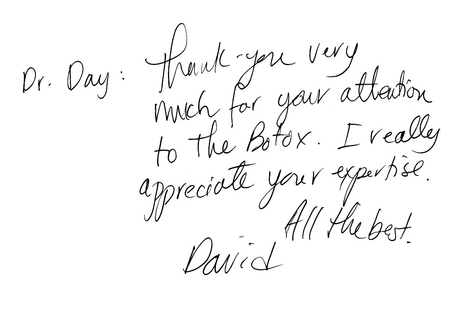 Dr. Day: Thank-you very
much for your attention
to the Botox. I really
appreciate your expertise.
All the best.
David